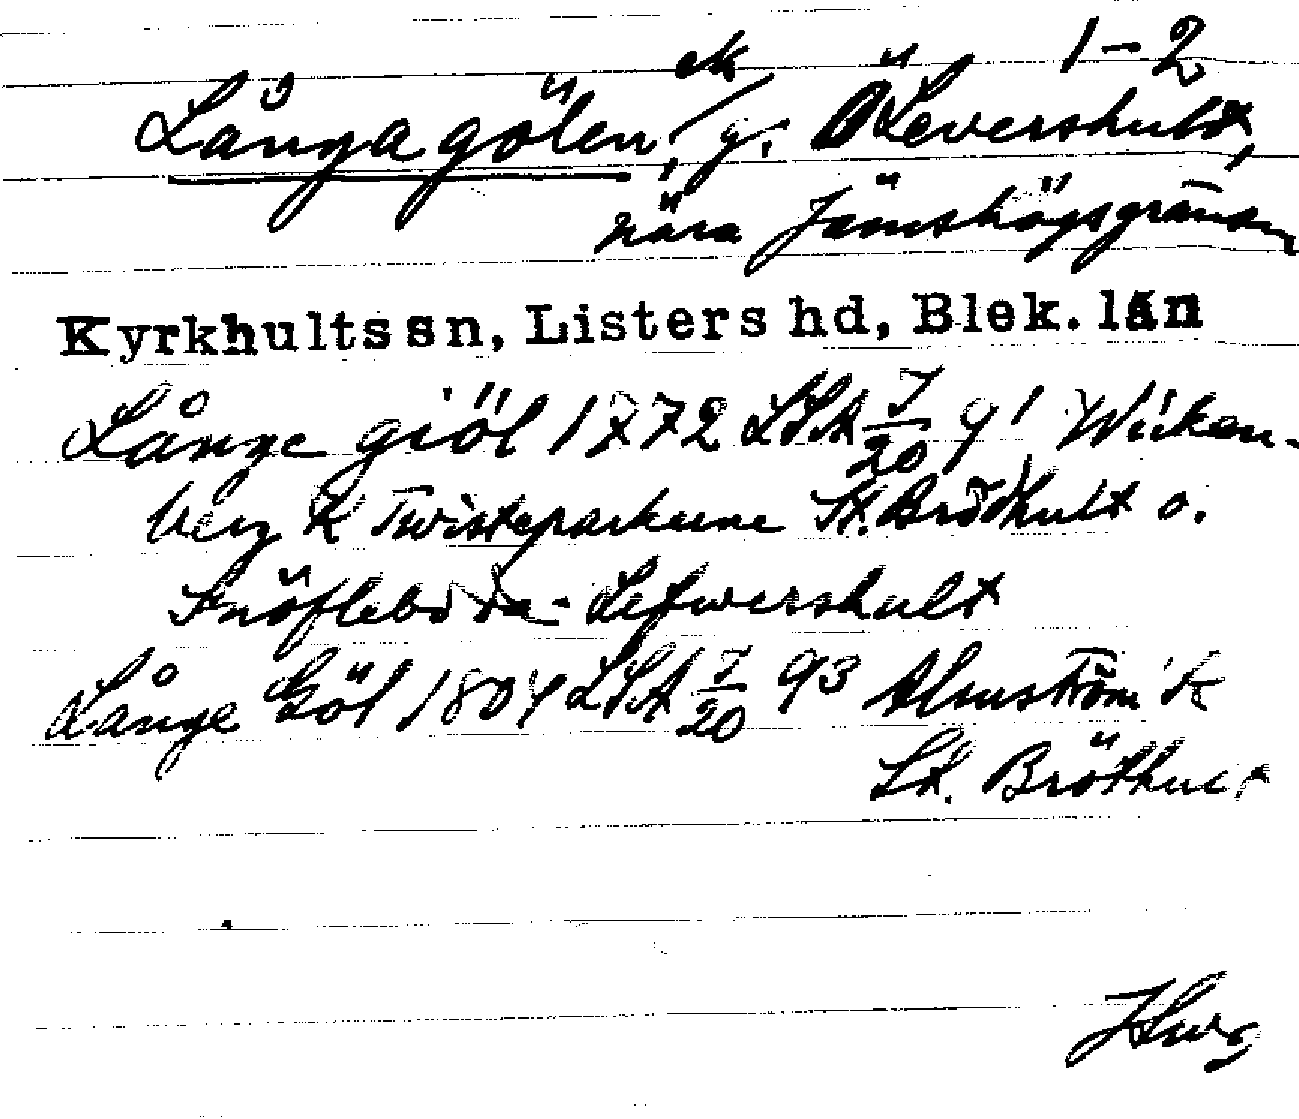 1-2
ek
Långagölen, g. Ö Levershult,
nära Jämshögsgränsen
Kyrkhults sn, Listers hd, Blek. län
Långe giöl 1772 LSA 7/20 91 Wicken-
berg K Twisteparkerne St. Brödhult o.
Snöfleboda - Lefwershult
Långe Göl 1804 LSA 7/20 93 Almström K
St. Bröthult